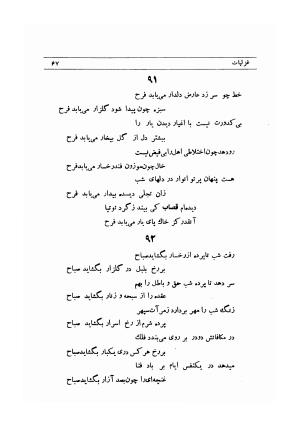 غزلیات ۶۷
۹۱
خط چو سر زد عارض دلدار می‌یابد فرح
سبزه چون پیدا شود گلزار می‌یابد فرح
بی کدورت نیست با اغیار دیدن یار را
بیشتر دل از گل بیخار می‌یابد فرح
رو دهد چون اختلاطی اهل را بی فیض نیست
خال چون موزون فتد رخسار می‌یابد فرح
هست پنهان پرتو انوار در دلهای شب
زان تجلی دیده بیدار می‌یابد فرح
دیده‌ام قصاب کی بیند ز گرد توتیا
آنقدر کز خاک پای یار می‌یابد فرح
۹۲
رفت شب تا پرده از رخسار بگشاید صباح
بر رخ بلبل در گلزار بگشاید صباح
سر دهد تا پرده شب حق و باطل را بهم
عقده را از سبحه و زنار بگشاید صباح
زنگ شب را مهر بردارد ز مرآت سپهر
پرده شرم از رخ اسرار بگشاید صباح
در مکافاتش دو در بر روی می‌بندد فلک
بر رخ هر کس دری یکبار بگشاید صباح
میدهد در یکنفس ایام بر باد فنا
غنچه‌ای را چون بصد آزار بگشاید صباح